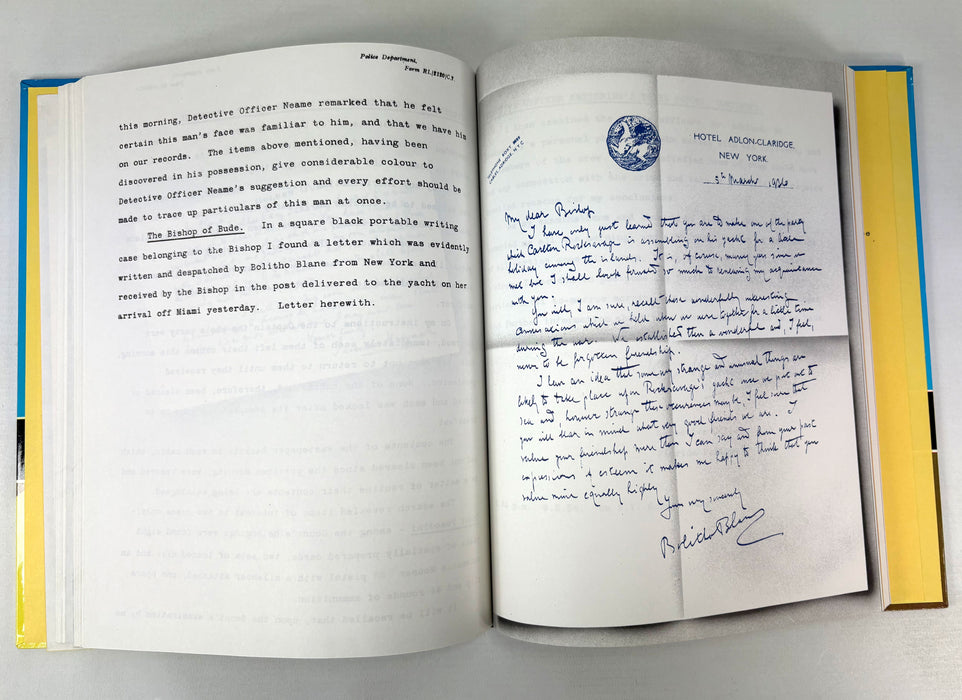 Police Department,
Form RL/2180/C.7
this morning, Detective Officer Neame remarked that he felt
certain this man's face was familiar to him, and that we have him
on our records. The items above mentioned, having been
discovered in his possession, give considerable colour to
Detective Officer Neame's suggestion and every effort should be
made to trace up particulars of this man at once.
The Bishop of Bude. In a square black portable writing
case belonging to the Bishop I found a letter which was evidently
written and despatched by Bolitho Blane from New York and
received by the Bishop in the post delivered to the yacht on her
arrival off Miami yesterday. Letter herewith.
HOTEL ADLON-CLARIDGE,
NEW YORK.
5th March 1936
My dear Bishop
I have only just learned that you are to make one of the party
which Carlton Rocksavage is assembling on his yacht for a
holiday among the islands. It is, of course, many years since we
met but I shall look forward so much to renewing my acquaintance
with you.
You will, I am sure, recall those wonderfully interesting
conversations which we held when we were together for a little time
during the war. We established then a wonderful and, I feel,
never to be forgotten friendship.
I have an idea that some very strange and unusual things are
likely to take place upon Rocksavage's yacht once we put out to
sea and, however strange these occurrences may be, I feel sure that
you will bear in mind what very good friends we are. I
value your friendship more than I can say and from your past
expressions of esteem it makes me happy to think that you
value mine equally highly
Yours very sincerely
Bolitho Blane